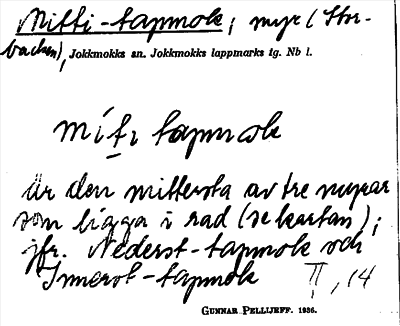 Mitti-tapmok, myr (Stor-
backen), Jokkmokks sn. Jokkmokks lappmarks tg. Nb l.
míti tapmok
Är den mittersta av tre myrar
som ligga i rad (se kartan);
jfr. Nederst-tapmok och
Innerst-tapmok II, 14
GUNNAR PELLIJEFF. 1936.